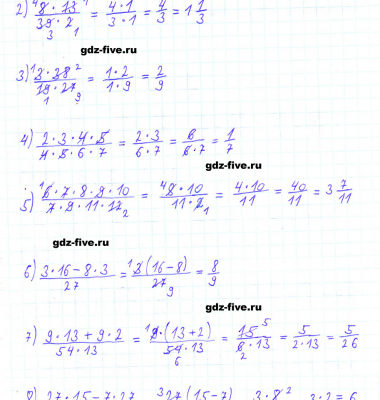 2) 8·13 / 39·2 = 4·1 / 3·1 = 4/3 = 1 1/3
gdz-five.ru
3) 3·38 / 19·27 = 1·2 / 1·9 = 2/9
4) 2·3·4·5 / 4·5·6·7 = 2·3 / 6·7 = 6 / 6·7 = 1/7
gdz-five.ru
5) 6·7·8·9·10 / 7·9·11·12 = 8·10 / 11·2 = 4·10 / 11 = 40/11 = 3 7/11
gdz-five.ru
6) 3·16-8·3 / 27 = 3(16-8) / 27 = 8/9
gdz-five.ru
7) 9·13+9·2 / 54·13 = 9·(13+2) / 54·13 = 15 / 6·13 = 5 / 2·13 = 5/26
27·15-7·27 27(15-7) 3·8 3·2 = 6